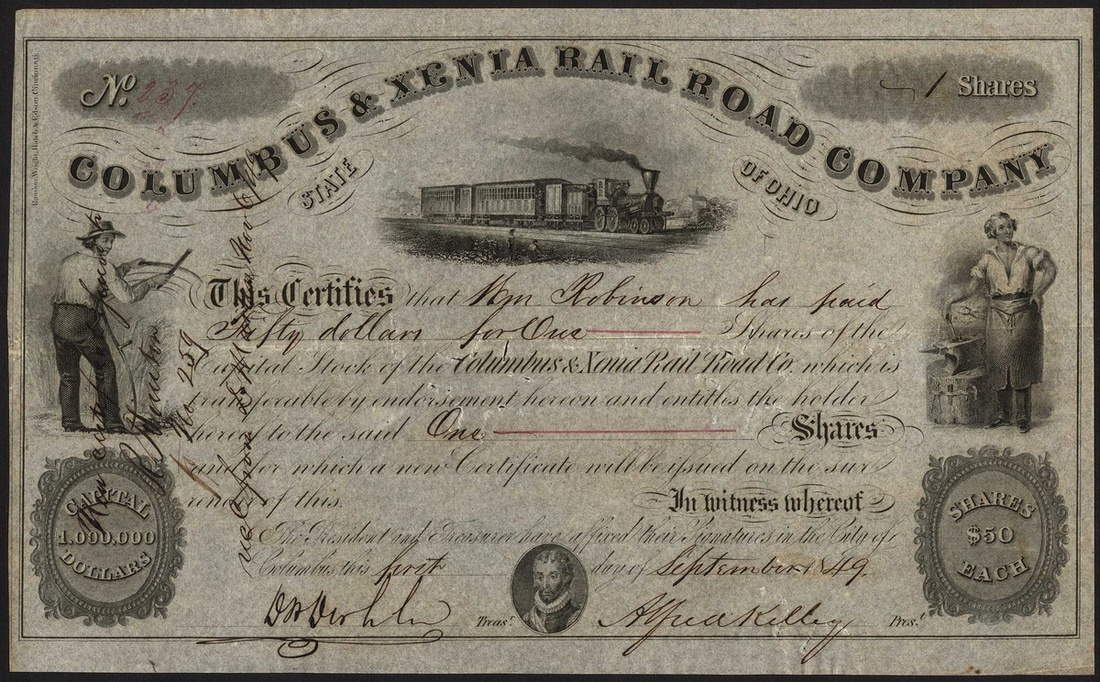 Rawdon, Wright, Hatch & Edson, Cincinnati.
No. 237.
1 Shares
COLUMBUS & XENIA RAIL ROAD COMPANY
STATE OF OHIO
This Certifies that Wm Robinson has paid
Fifty dollars for One Shares of the
Capital Stock of the Columbus & Xenia Rail Road Co. which is
transferable by endorsement hereon and entitles the holder
hereof to the said One Shares
and for which a new Certificate will be issued on the sur
render of this. In witness whereof
The President and Treasurer have affixed their Signatures in the City of
Columbus this first day of September 1849.
Treasr.
Alfred Kelley Prest.
CAPITAL
1,000,000
DOLLARS
SHARES
$50
EACH
No 259